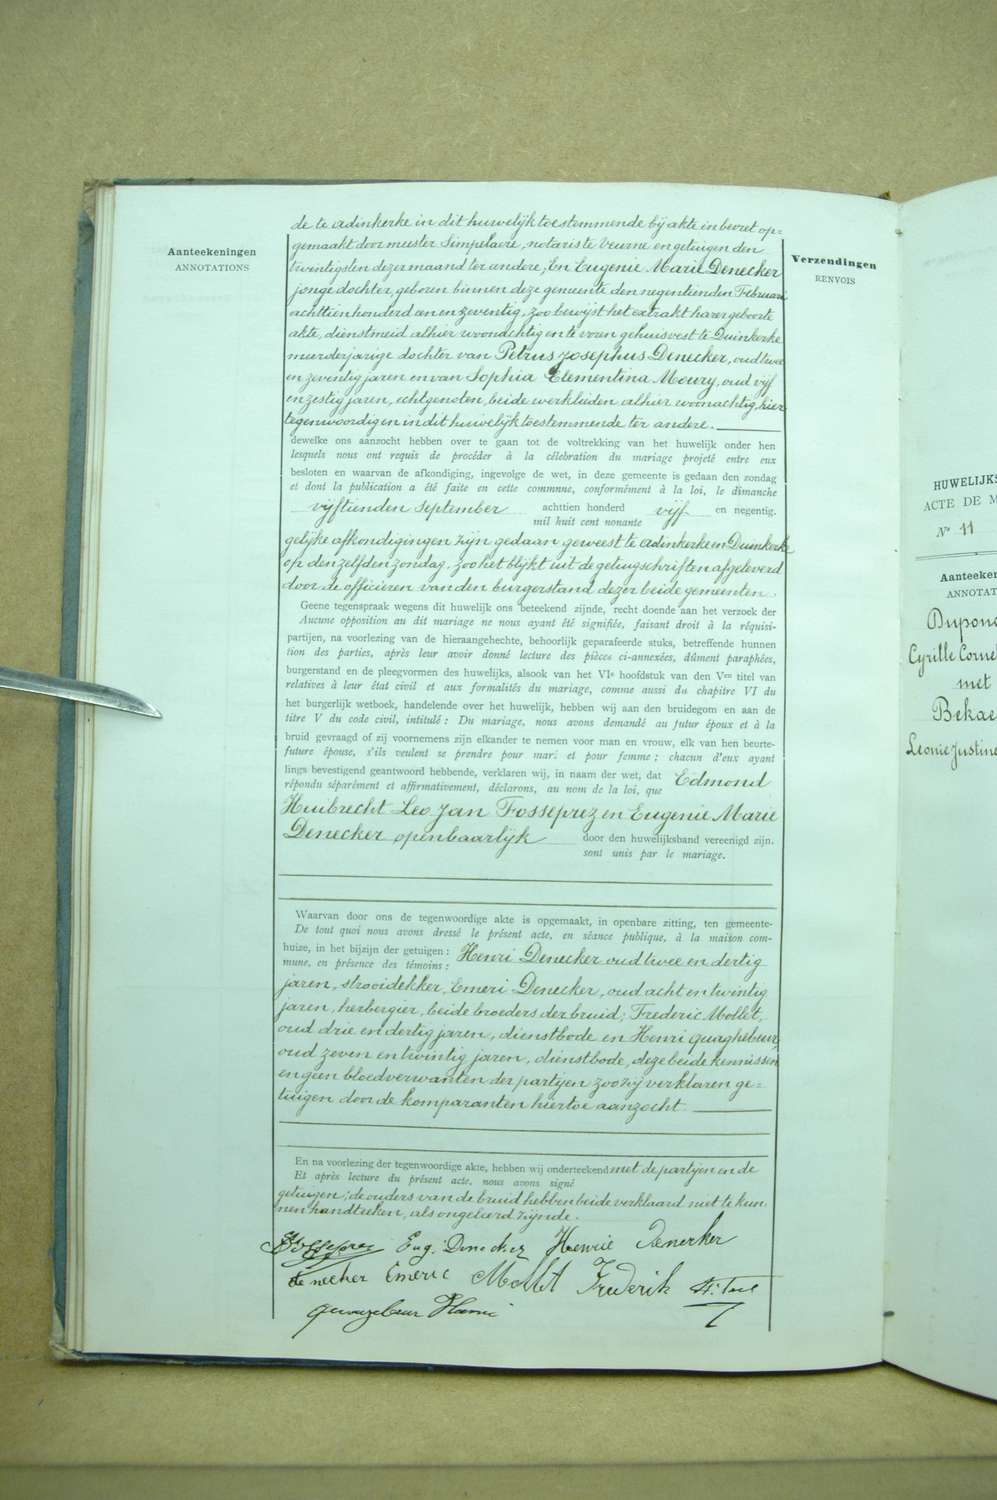 Aanteekeningen
ANNOTATIONS
de te adinkerke in dit huwelijk toestemmende bij akte in brevet op=
gemaakt door meester Simpelaere, notaris te Veurne en getuigen den
twintigsten dezer maand ter andere; En Eugenie Marie Denecker
jonge dochter, geboren binnen deze gemeente den negentienden Februari
achttien honderd een en zeventig, zoo bewijst het extrakt harer geboorte
akte, dienstmeid alhier woonachtig en te voren gehuisvest te Duinkerke
meerderjarige dochter van Petrus Josephus Denecker, oud twee
en zeventig jaren en van Sophia Clementina Moury, oud vijf
en zestig jaren, echtgenoten, beide werklieden alhier woonachtig, hier
tegenwoordig en in dit huwelijk toestemmende ter andere.
dewelke ons aanzocht hebben over te gaan tot de voltrekking van het huwelijk onder hen
lesquels nous ont requis de procéder à la célébration du mariage projeté entre eux
besloten en waarvan de afkondiging, ingevolge de wet, in deze gemeente is gedaan den zondag
et dont la publication a été faite en cette commune, conformément à la loi, le dimanche
vijftienden September achttien honderd vijf en negentig.
mil huit cent nonante
gelijke afkondigingen zijn gedaan geweest te adinkerke en Duinkerke
op den zelfden zondag, zoo het blijkt uit de getuigschriften afgeleverd
door de officieren van den burgerstand dezer beide gemeenten.
Geene tegenspraak wegens dit huwelijk ons beteekend zijnde, recht doende aan het verzoek der
Aucune opposition au dit mariage ne nous ayant été signifiée, faisant droit à la réquisi-
partijen, na voorlezing van de hieraangehechte, behoorlijk geparafeerde stuks, betreffende hunnen
tion des parties, après leur avoir donné lecture des pièces ci-annexées, dûment paraphées,
burgerstand en de pleegvormen des huwelijks, alsook van het VIe hoofdstuk van den Ven titel van
relatives à leur état civil et aux formalités du mariage, comme aussi du chapitre VI du
het burgerlijk wetboek, handelende over het huwelijk, hebben wij aan den bruidegom en aan de
titre V du code civil, intitulé : Du mariage, nous avons demandé au futur époux et à la
bruid gevraagd of zij voornemens zijn elkander te nemen voor man en vrouw, elk van hen beurte-
future épouse, s'ils veulent se prendre pour mari et pour femme ; chacun d'eux ayant
lings bevestigend geantwoord hebbende, verklaren wij, in naam der wet, dat Edmond
répondu séparément et affirmativement, déclarons, au nom de la loi, que
Huibrecht Leo Jan Fosseprez en Eugenie Marie
Denecker openbaarlijk door den huwelijksband vereenigd zijn.
sont unis par le mariage.
Waarvan door ons de tegenwoordige akte is opgemaakt, in openbare zitting, ten gemeente-
De tout quoi nous avons dressé le présent acte, en séance publique, à la maison com-
huize, in het bijzijn der getuigen : Henri Denecker oud twee en dertig
mune, en présence des témoins :
jaren, strooidekker, Emeri Denecker, oud acht en twintig
jaren, herbergier, beide broeders der bruid; Frederic Mollet,
oud drie en dertig jaren, dienstbode en Henri Quaghebeur,
oud zeven en twintig jaren, dienstbode, deze beide kennissen
en geen bloedverwanten der partijen zoo zij verklaren ge=
tuigen door de komparanten hiertoe aanzocht.
En na voorlezing der tegenwoordige akte, hebben wij onderteekend met de partijen en de
Et après lecture du présent acte, nous avons signé
getuigen; de ouders van de bruid hebben beide verklaard niet te kun=
nen handteeken, als ongeleerd zijnde.
Eug. Denecker Henrie Denerker
denecker Emeric Mollet Frederik
Verzendingen
RENVOIS
HUWELIJKS
ACTE DE M
No 11
Aanteeken
ANNOTAT
Dupon
Cyrille Corne
met
Bekae
Leonie Justine